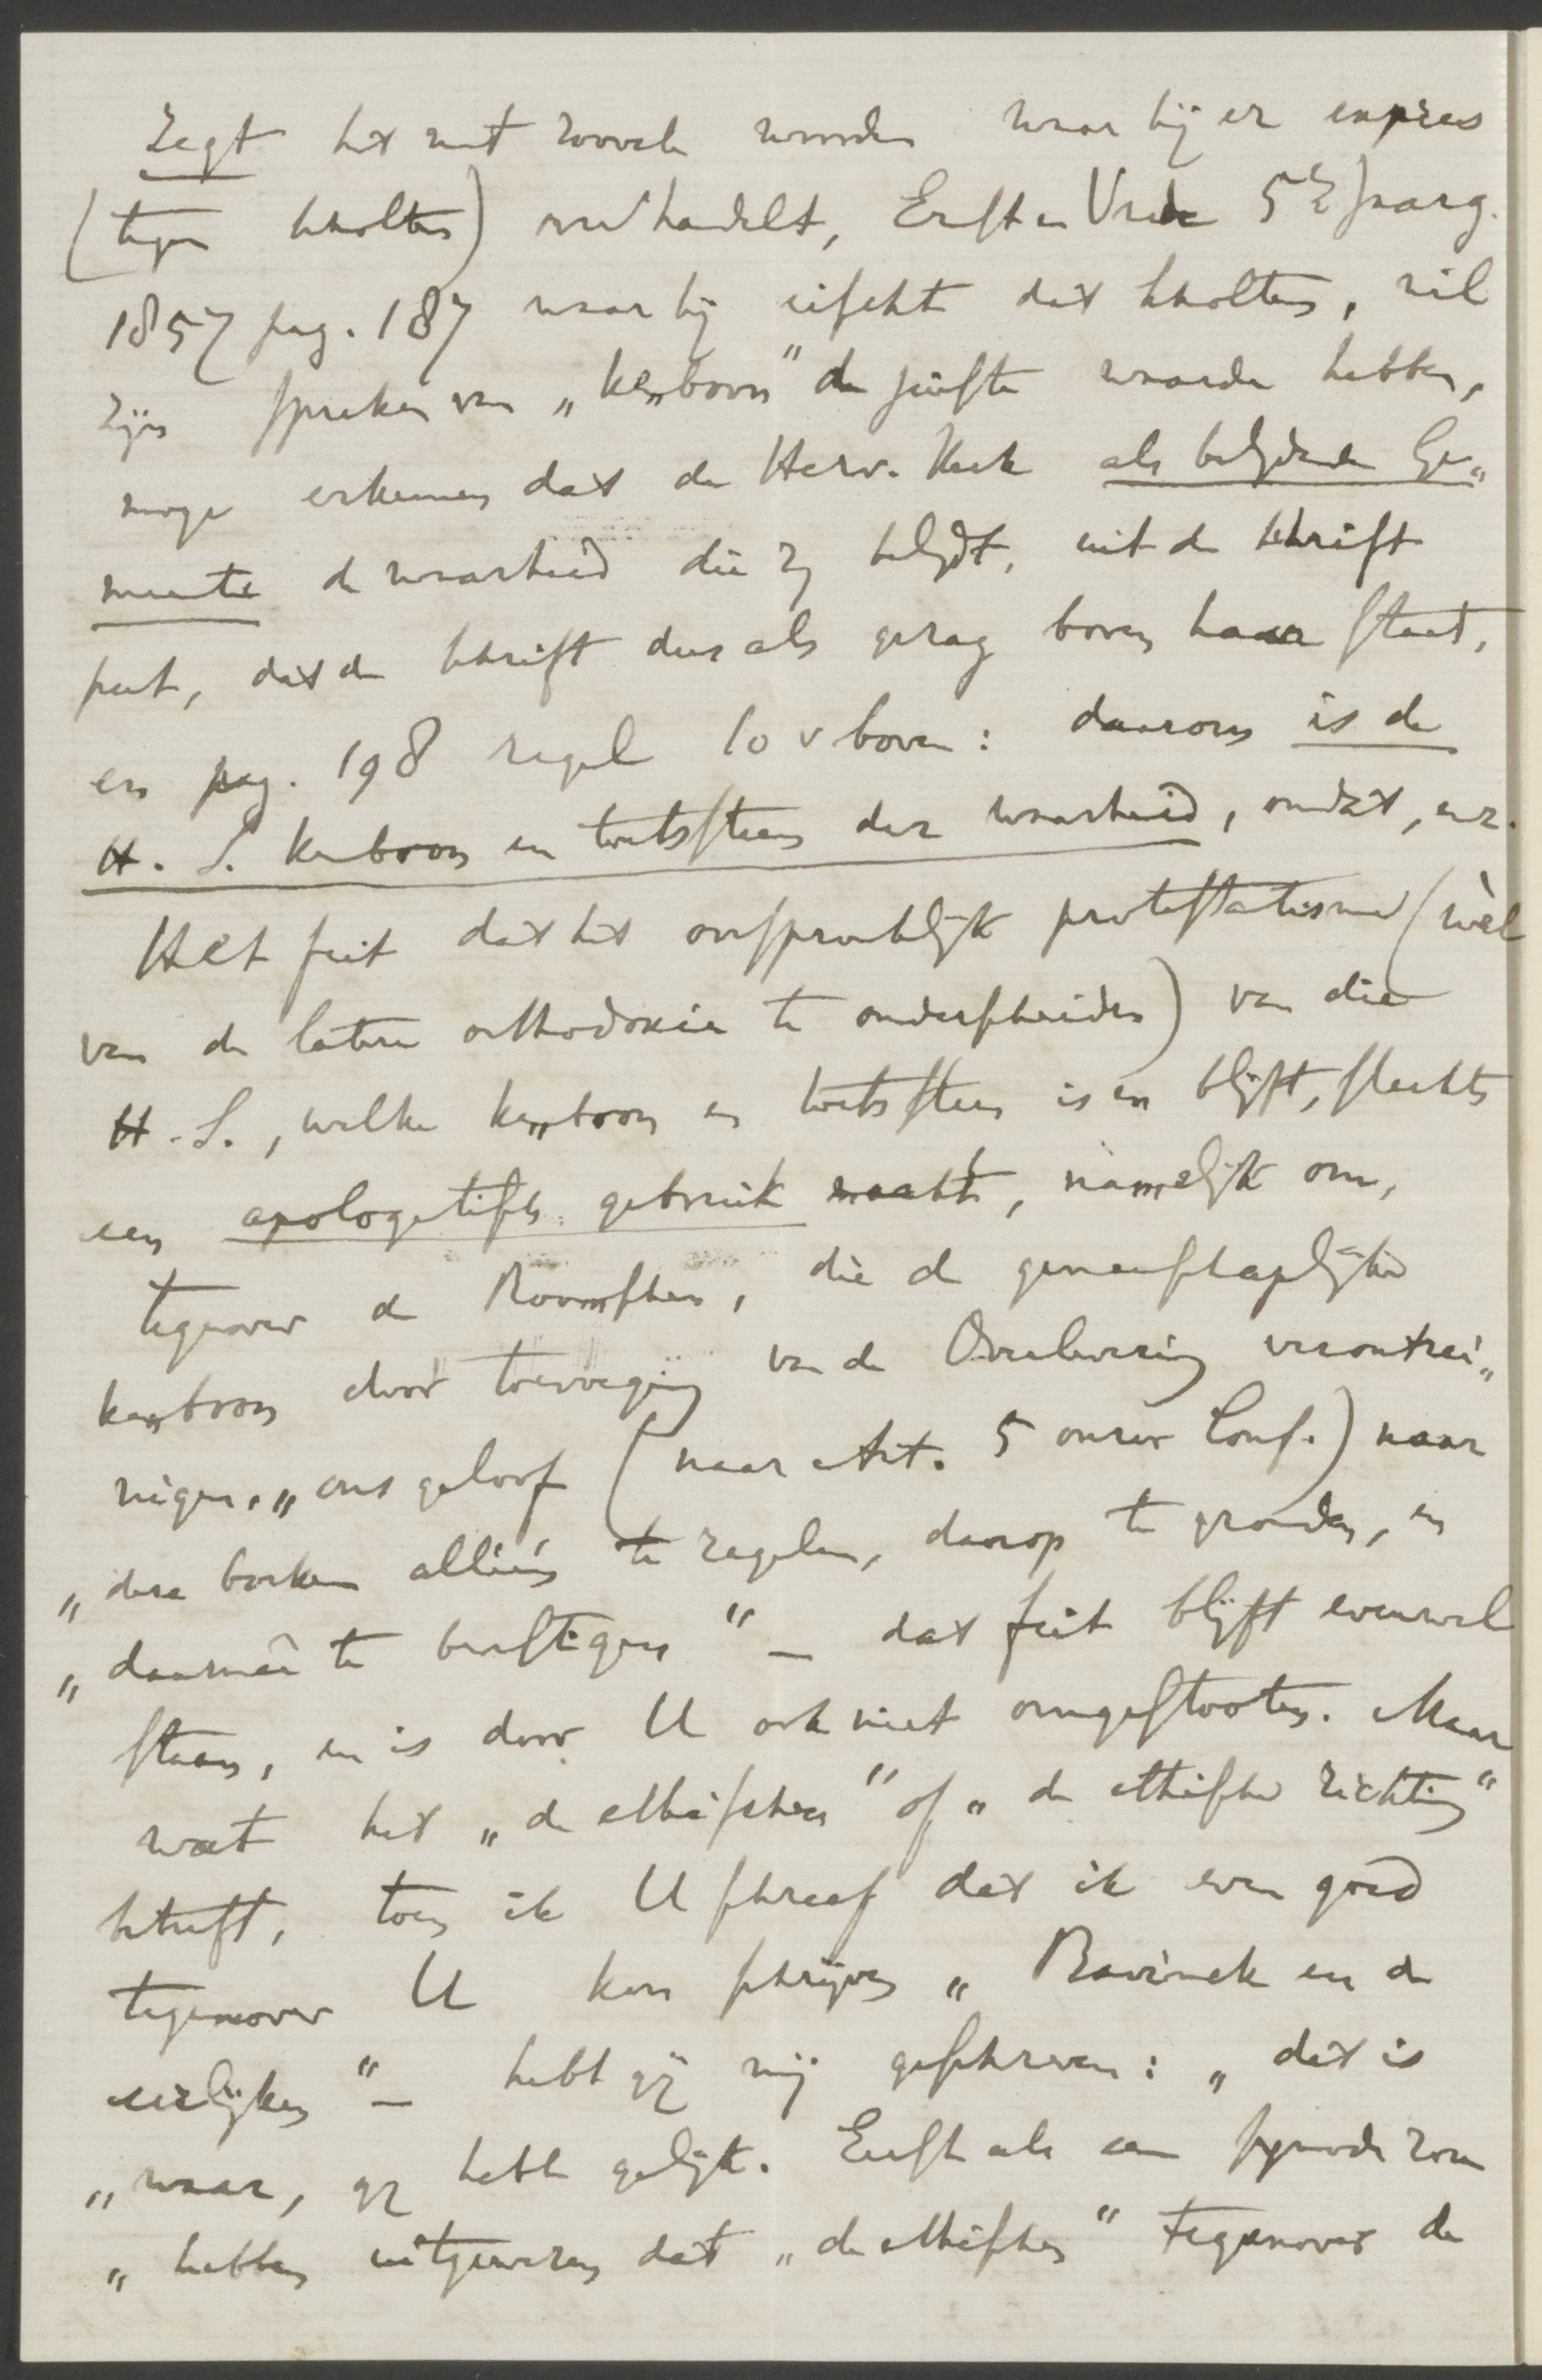 zegt het met zooveel woorden waar hij er expres
(tegen Scholten) over handelt, Ernst en Vrede 5e Jaarg.
1857 pag. 187 waar hij eischt dat Scholten, zal
zijn spreken van „kenbron" de juiste waarde hebben,
moge erkennen dat de Herv. Kerk als belijdende Ge„
meente de waarheid die zij belijdt, uit de Schrift
put, dat de Schrift dus als gezag boven haar staat,
en pag. 198 regel 10 v boven: daarom is de
H. S. kenbron en toetssteen der waarheid, omdat, enz.
Het feit dat het oorspronkelijk protestantisme (wèl
van de latere orthodoxie te onderscheiden) van die
H.S., welke kenbron en toetssteen is en blijft, slechts
een apologetisch gebruik maakte, namelijk om,
tegenover de Roomschen, die de gemeenschappelijke
kenbron door toevoeging van de Overlevering verontrei„
nigen, „ons geloof (naar Art. 5 onzer Conf.) naar
„deze boeken alléén te regelen, daarop te gronden, en
„daarmeê te bevestigen" — dat feit blijft evenwel
staan, en is door U ook niet omgestooten. Maar
wat het „de ethischen" of „de ethische richting"
betreft, toen ik U schreef dat ik even goed
tegenover U kon schrijven „Bavinck en de
eerlijken" — hebt gij mij geschreven: „dat is
„waar, gij hebt gelijk. Eerst als een synode zou
„hebben uitgewezen dat „de ethischen" tegenover de